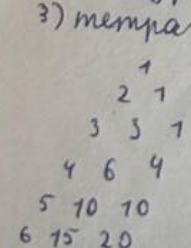 3) тетра
1
2 1
3 3 1
4 6 4
5 10 10
6 15 20